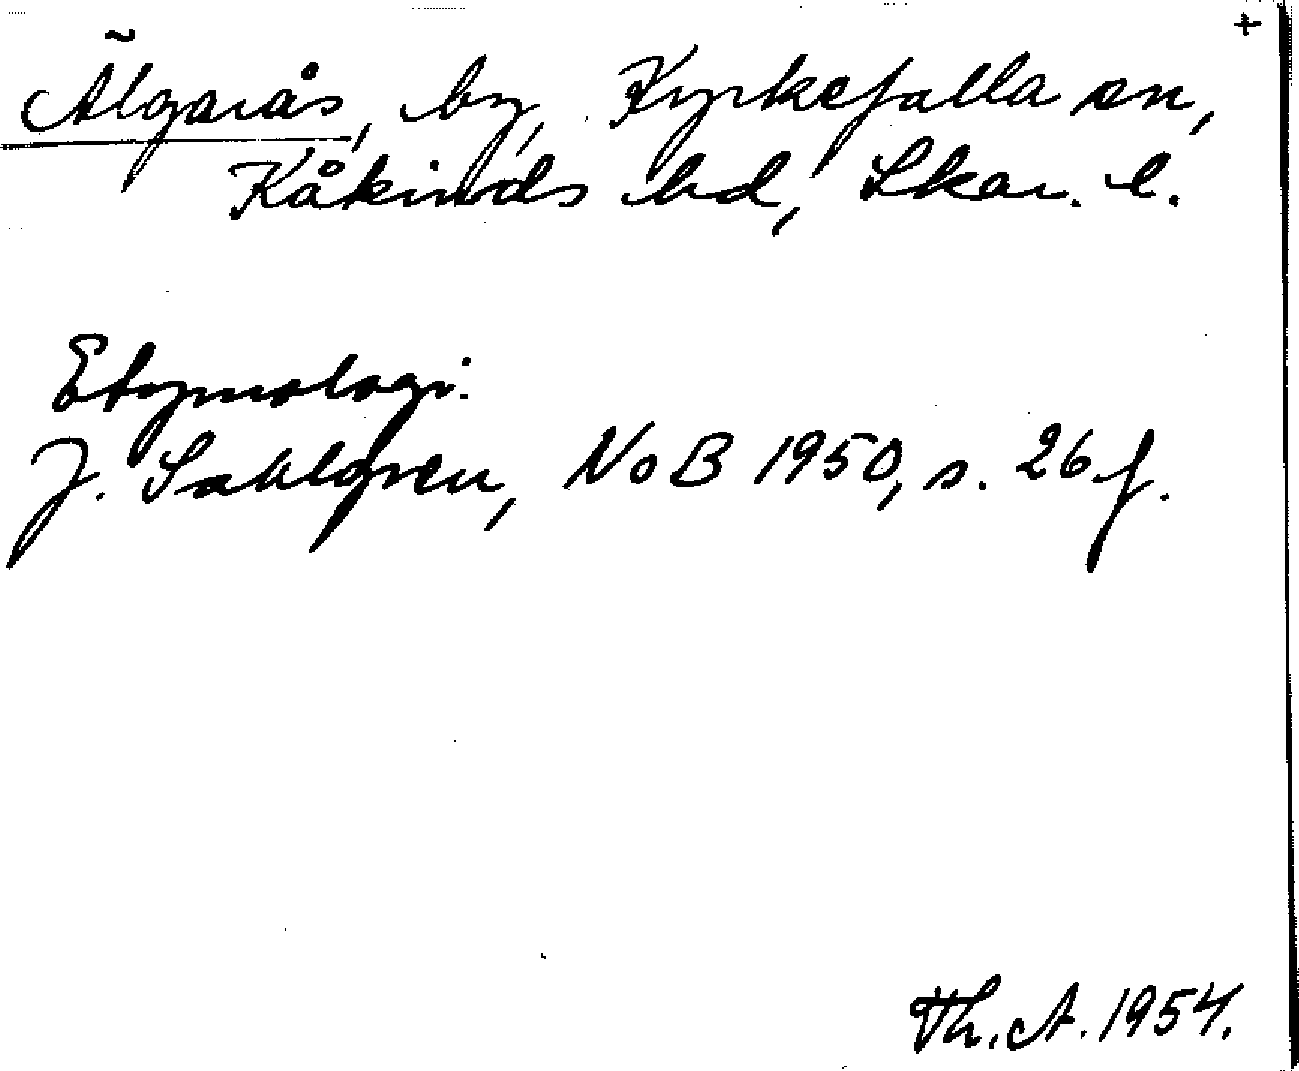 +
Älgarås, by, Kyrkefalla sn,
Kåkinds hd, Skar. l.
Etymologi:
J. Sahlgren, NoB 1950, s. 26 f.
Th. A. 1954.